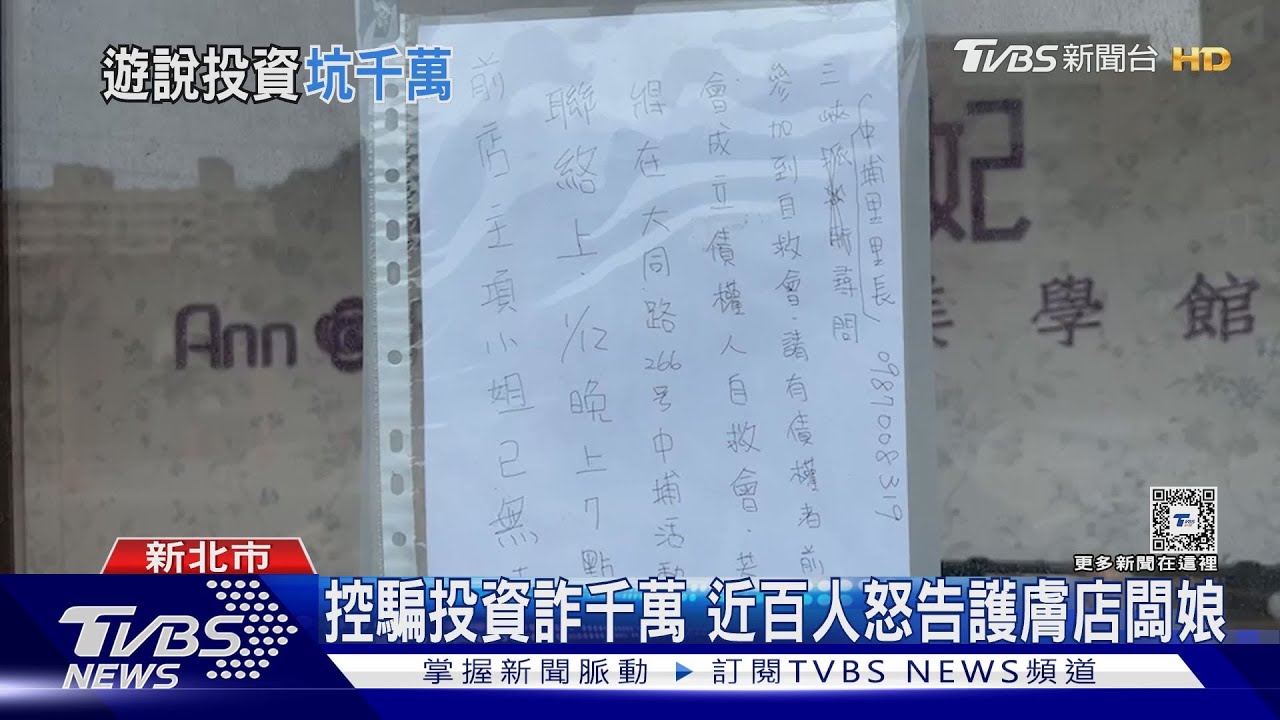 遊說投資坑千萬
TVBS新聞台 HD
前店主項小姐已無
聯絡上.1/12晚上7點
將在大同路266号中埔活動
會成立債權人自救會.若
參加到自救會.請有債權者前
三峽 尋問
(中埔里里長) 0987008319
Ann
妃
美學館
更多新聞在這裡
新北市
控騙投資詐千萬 近百人怒告護膚店闆娘
TVBS NEWS
掌握新聞脈動 ▶ 訂閱TVBS NEWS頻道